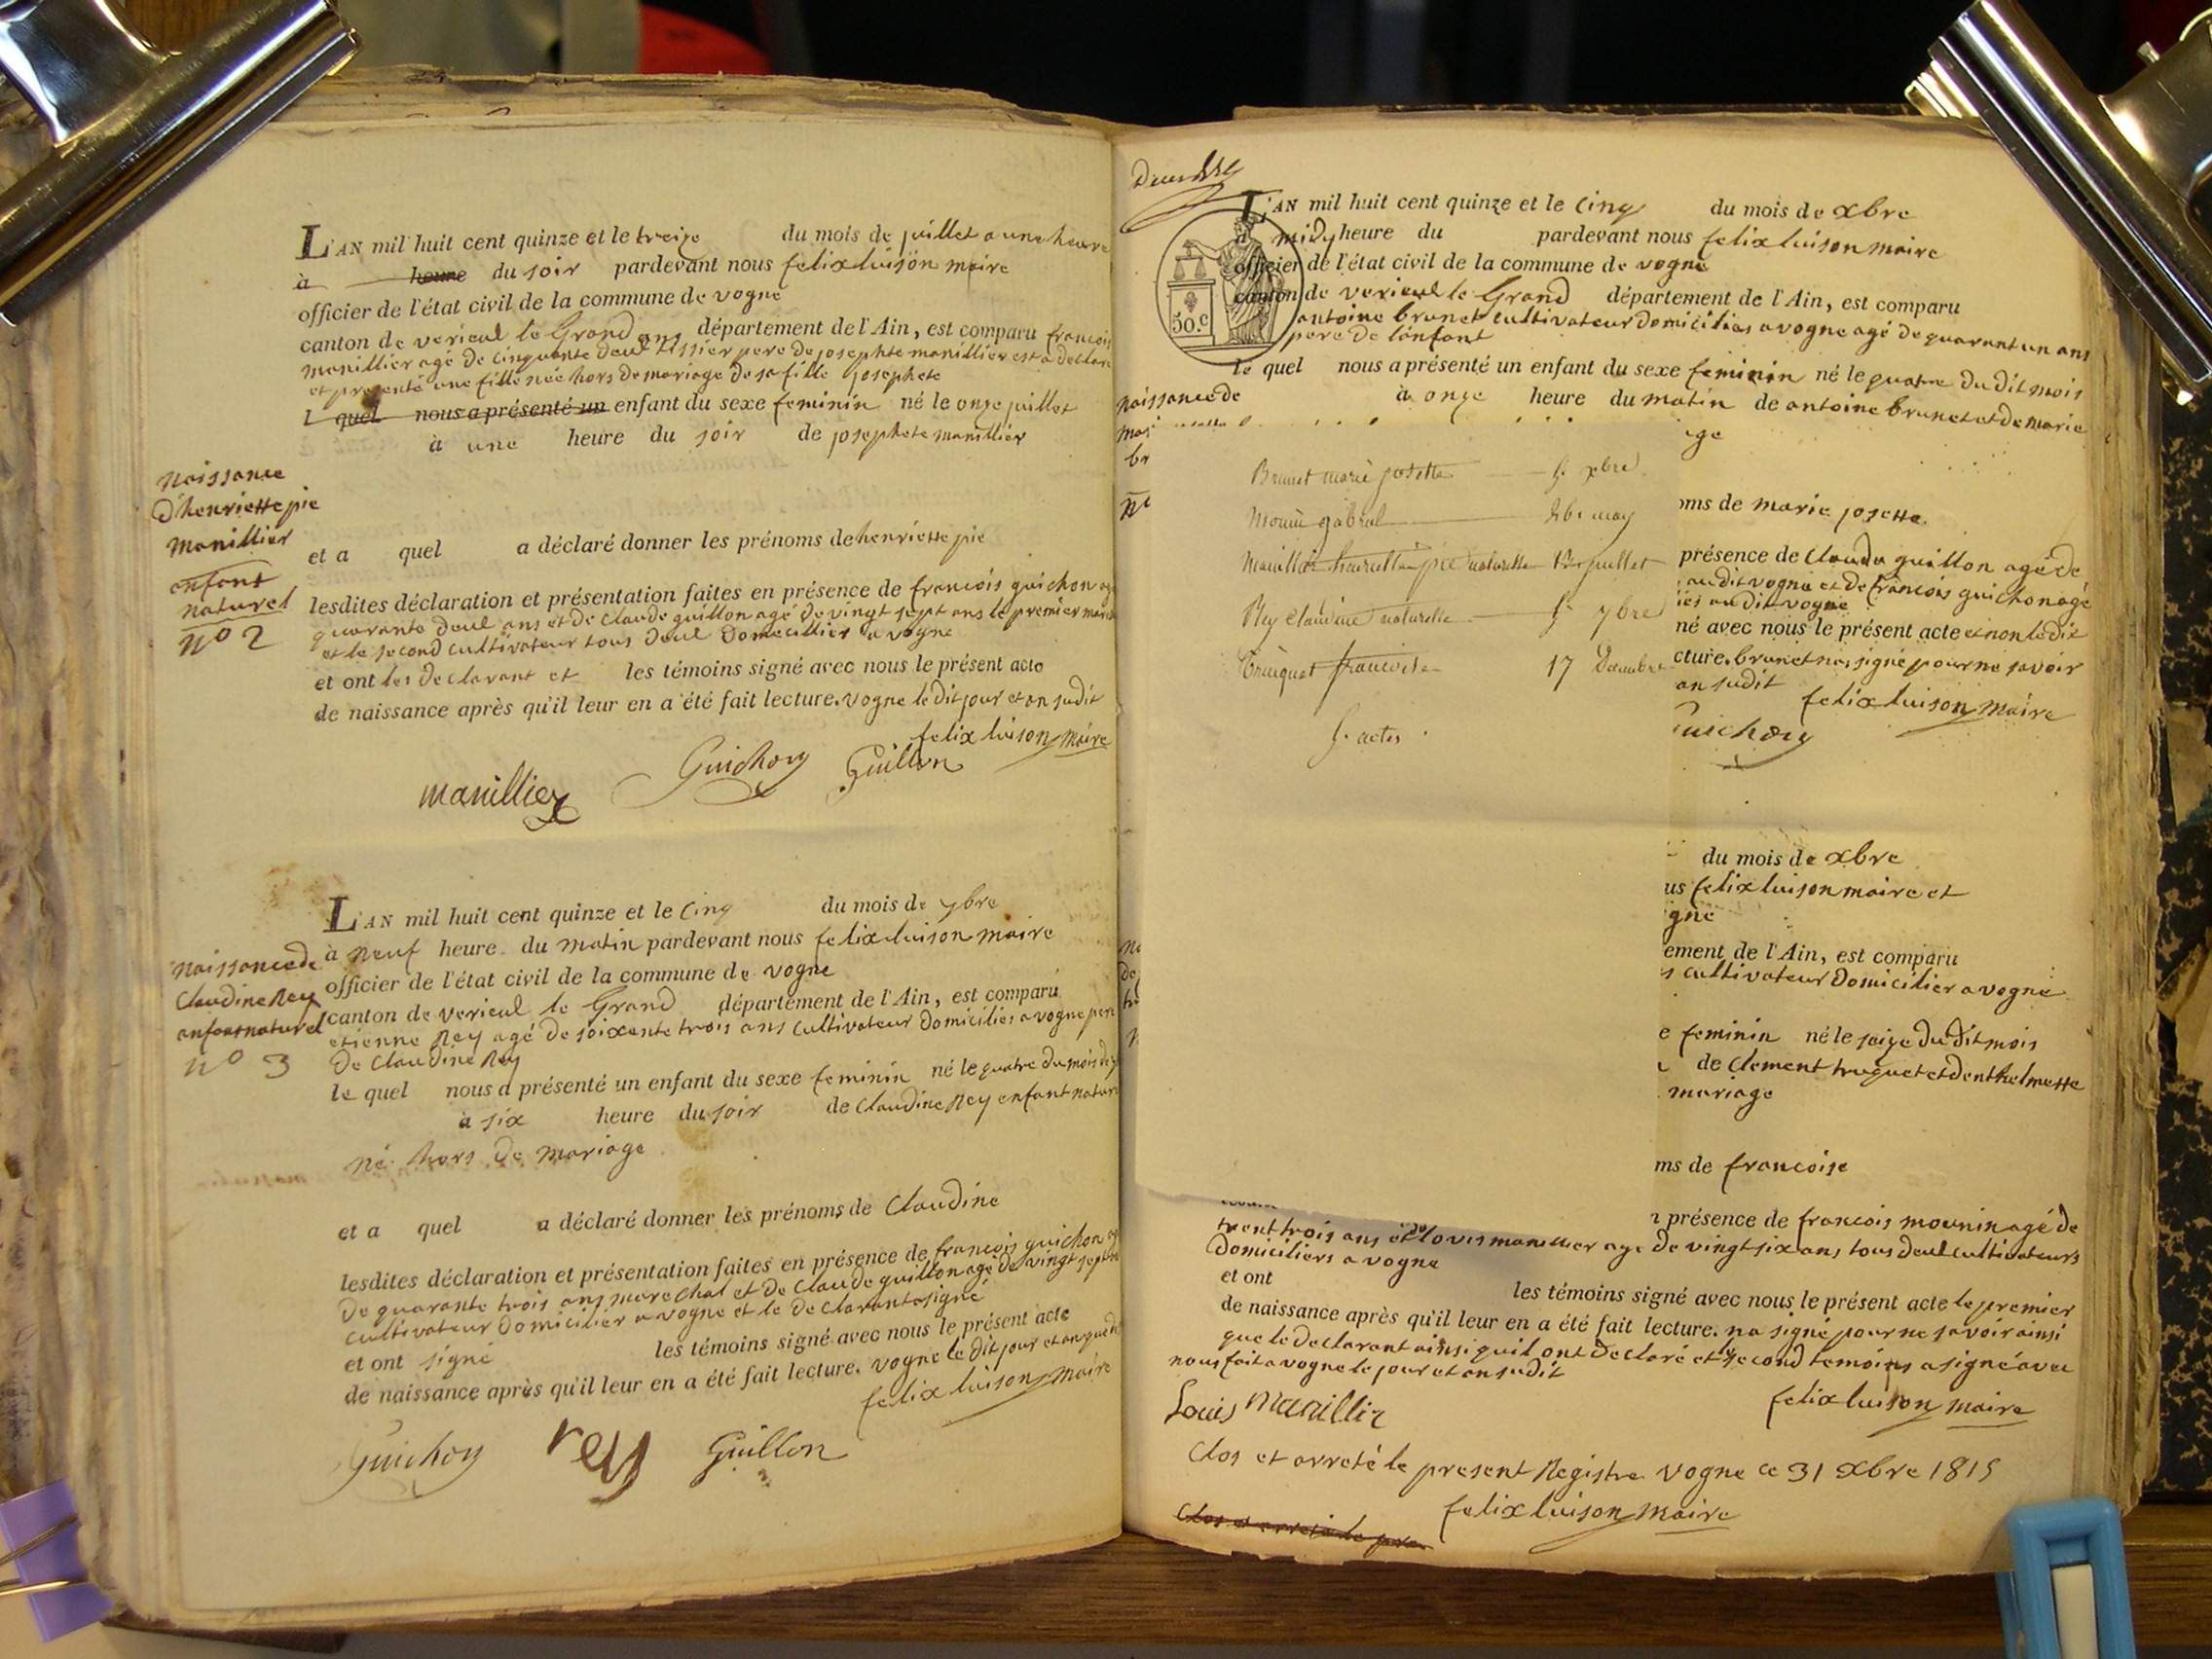 L'AN mil huit cent quinze et le treize du mois de juillet a une heure
à heure du soir pardevant nous felix luison maire
officier de l'état civil de la commune de vogne
canton de verieul le Grand département de l'Ain, est comparu francois
manillier agé de cinquante deul ans tissier pere de josephte manillier est a declare
et presenté une fille née hors de mariage de sa fille josephete
l quel nous a présenté un enfant du sexe feminin né le onze juillet
à une heure du soir de josephete manillier
Naissance
d'henriette pie
manillier
enfant
naturel
n° 2
et a quel a déclaré donner les prénoms de henriette pie
lesdites déclaration et présentation faites en présence de francois guichon
quarante deul ans et de claude guillon agé de vingt sept ans le premier
et le second cultivateur tous deul domecillier a vogne
et ont les declarant et les témoins signé avec nous le présent acte
de naissance après qu'il leur en a été fait lecture. vogne le dit jour et an sudit
felix luison maire
manillier Guichon Guillon
L'AN mil huit cent quinze et le cinq du mois de 7bre
à neuf heure du matin pardevant nous felix luison maire
officier de l'état civil de la commune de vogne
canton de verieul le Grand département de l'Ain, est comparu
etienne Rey agé de soixente trois ans cultivateur domicilies a vogne pere
de Claudine Rey
le quel nous a présenté un enfant du sexe feminin né le quatre du mois de
à six heure du soir de Claudine Rey enfant nature
né hors de mariage
Naissance de
Claudine Rey
enfant naturel
n° 3
et a quel a déclaré donner les prénoms de Claudine
lesdites déclaration et présentation faites en présence de francois guichon
de quarante trois ans marechal et de Claude guillon agé de vingt sept
cultivateur domicilier a vogne et le declarant a signé
et ont signé les témoins signé avec nous le présent acte
de naissance après qu'il leur en a été fait lecture. vogne le dit jour et an
felix luison maire
Guichon rey Guillon
L'AN mil huit cent quinze et le cinq du mois de xbre
à midy heure du pardevant nous felix luison maire
officier de l'état civil de la commune de vogne
canton de verieul le Grand département de l'Ain, est comparu
50.c
antoine brunet cultivateur domicilies a vogne agé de quarant un ans
pere de lénfant
le quel nous a présenté un enfant du sexe feminin né le quatre du dit mois
à onze heure du matin de antoine brunet et de marie
naissance de
Brunet marie josette 5 xbre
Mounin gabriel 26 may
Manillier henriette pie naturelle 13 juillet
Rey claudine naturelle 5 7bre
Truquet francoise 17 Decembre
5 actes
oms de marie josette
présence de Claude guillon agé de
au dit vogne et de francois guichon agé
iés au dit vogne
né avec nous le présent acte et non le dit
cture. brunet na signé pour ne savoir
an sudit
felix luison maire
Guichon
du mois de xbre
us felix luison maire et
igne
ement de l'Ain, est comparu
s cultivateur domicilier a vogne
e feminin né le seize du dit mois
de Clement truquet et denthelmette
mariage
ms de francoise
n présence de francois mounin agé de
trent trois ans et de louis manillier age de vingt six ans tous deul cultivateurs
domiciliers a vogne
et ont les témoins signé avec nous le présent acte le premier
de naissance après qu'il leur en a été fait lecture. na signé pour ne savoir ainsi
que le declarant ainsi quil ont declaré et le second temoins a signé avec
nous fait a vogne le jour et an sudit
Louis Manillir felix luison maire
Clos et arreté le present Registre vogne ce 31 xbre 1815
felix luison maire